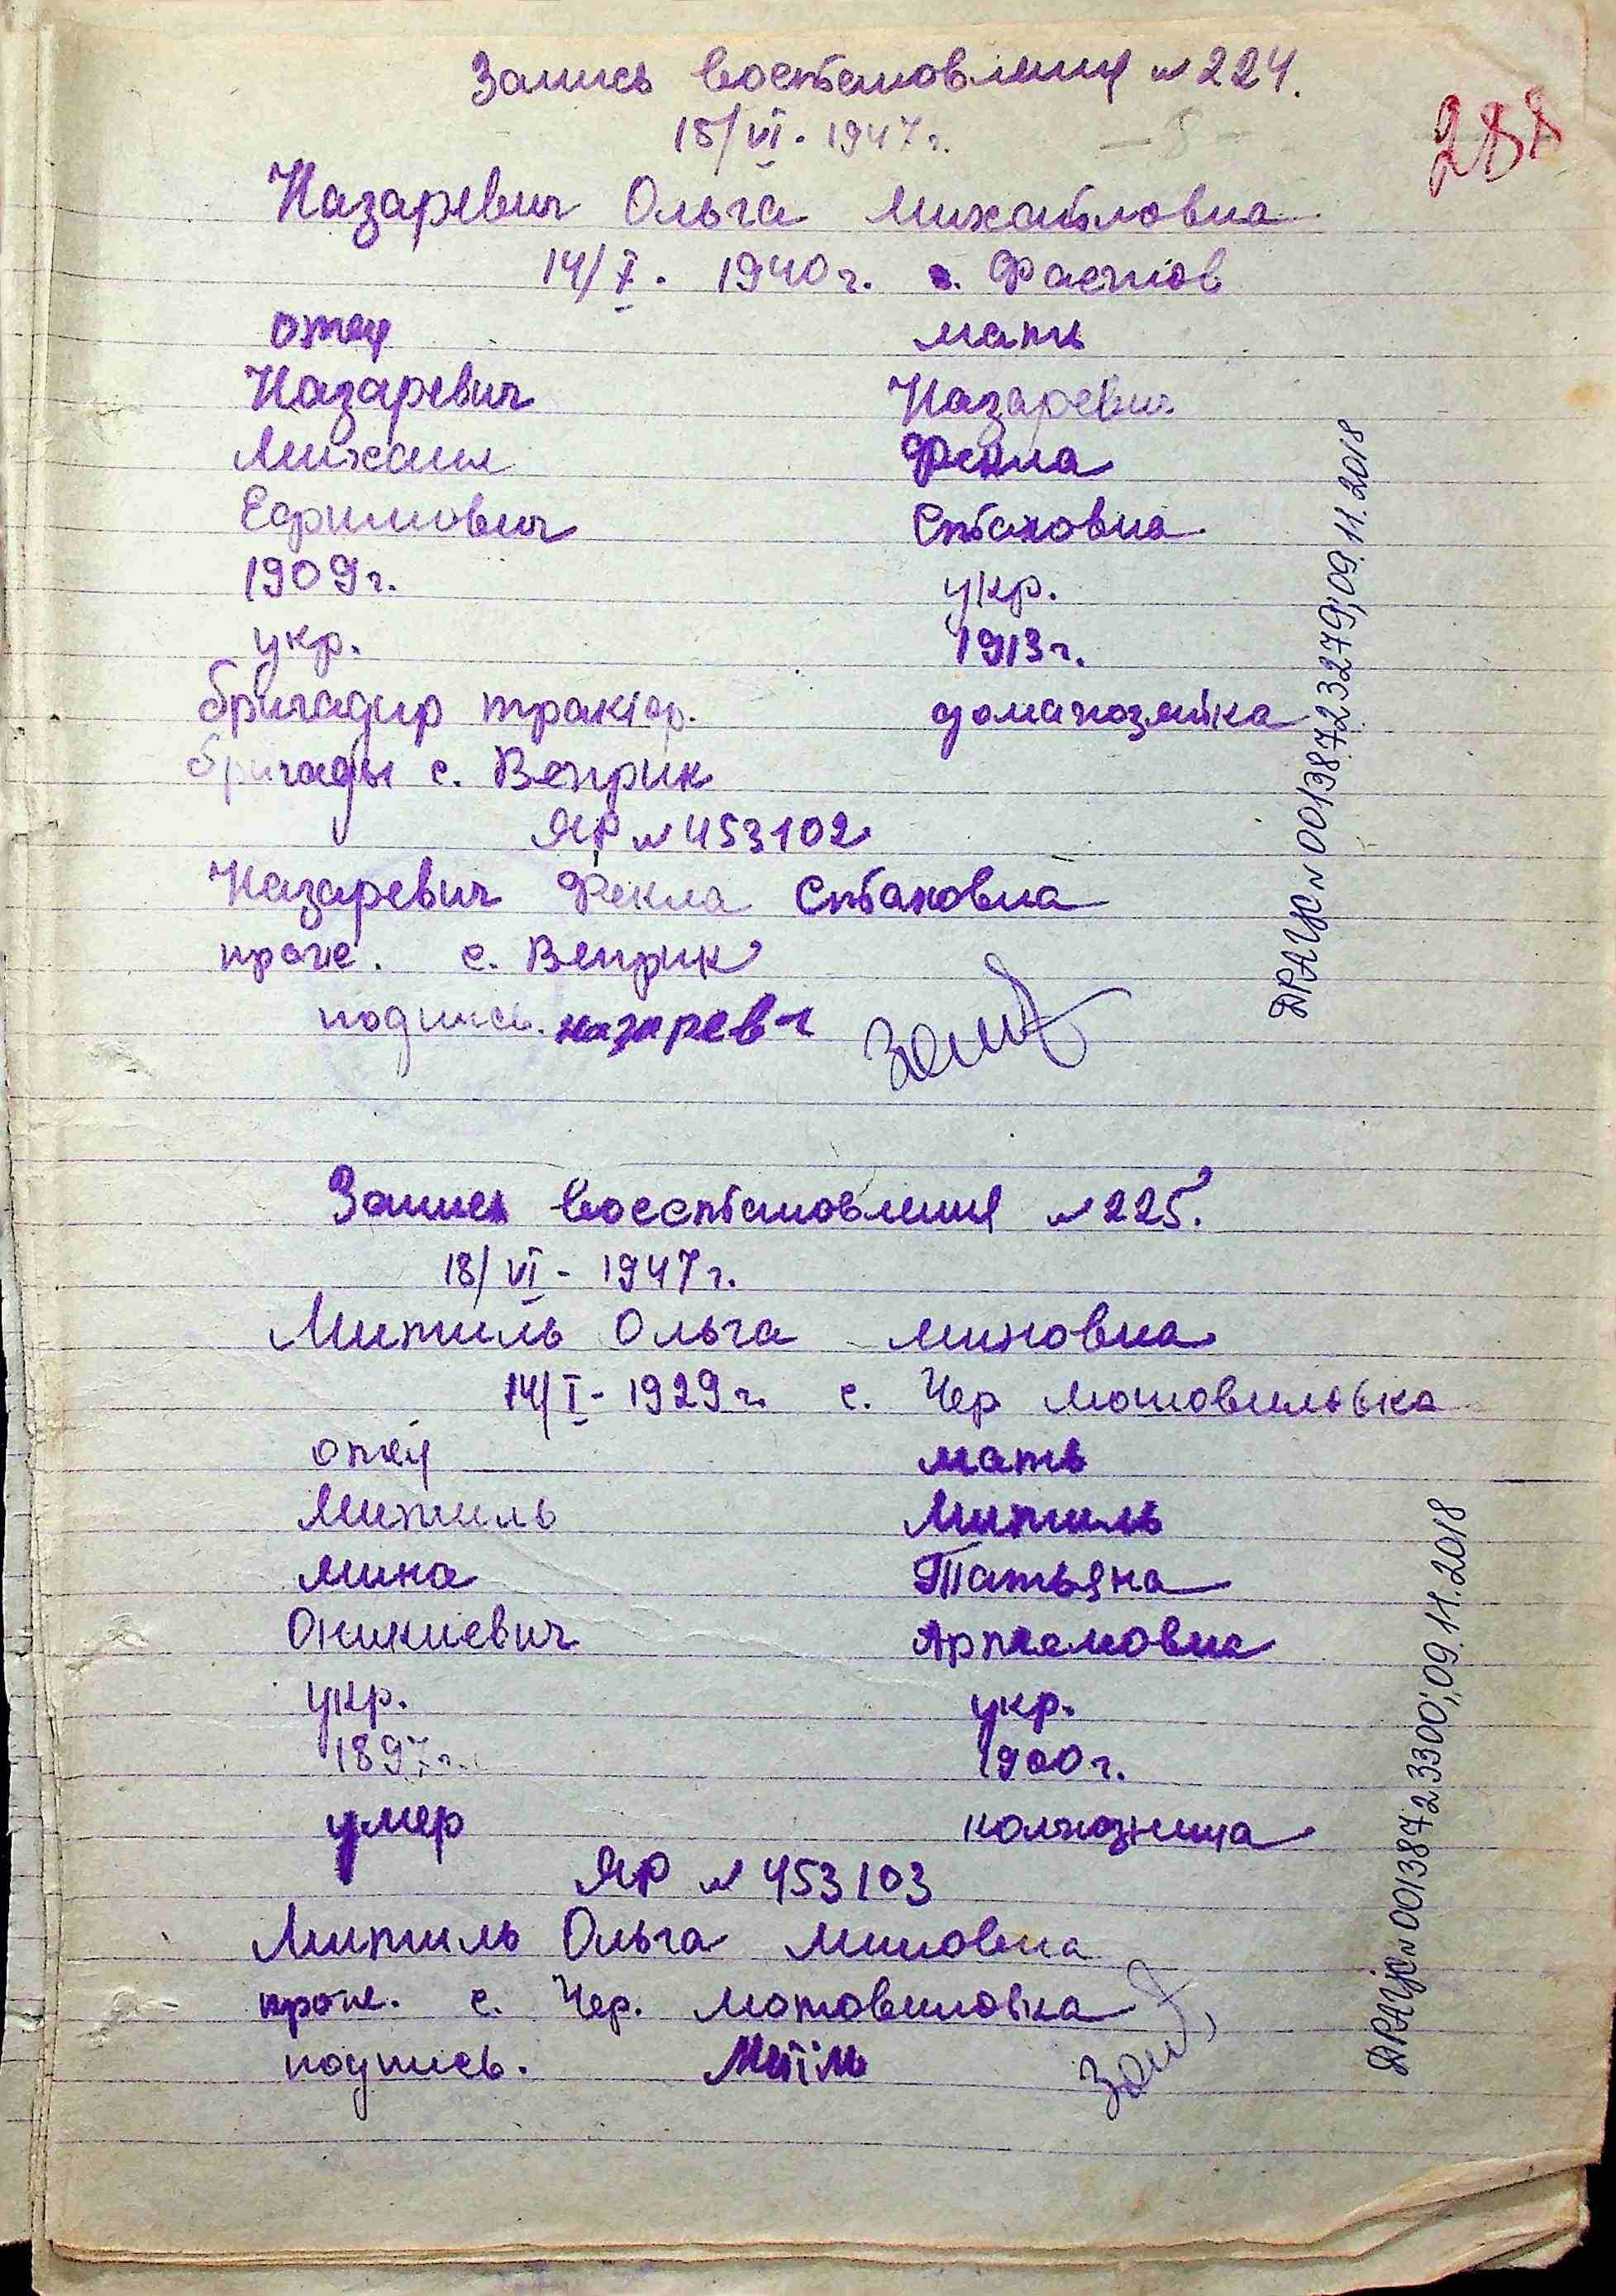 Запись востановления № 224.
15/VI. 1947г.
288
Назаревич Ольга Михайловна
14/X. 1940г. г. Фастов
отец мать
Назаревич Назаревич
Михаил Фекла
Ефимович Стаховна
1909г. укр.
укр. 1913г.
бригадир трактор. домахозяйка
бригады с. Веприк
ЯР № 453102
Назаревич Фекла Стаховна
прож. с. Веприк
подпись. назаревч
ДРАЦС № 00138723279; 09.11.2018
Запись восстановления № 225.
18/VI - 1947г.
Митиль Ольга Миновна
14/I - 1929г. с. Чер Мотовиловка
отец мать
Митиль Митиль
Мина Татьяна
Оникиевич Артемовна
укр. укр.
1897г. 1900г.
умер колхозница
ЯР № 453103
Митиль Ольга Миновна
прож. с. Чер. Мотовиловка
подпись. Митіль
ДРАЦС № 00138723300; 09.11.2018